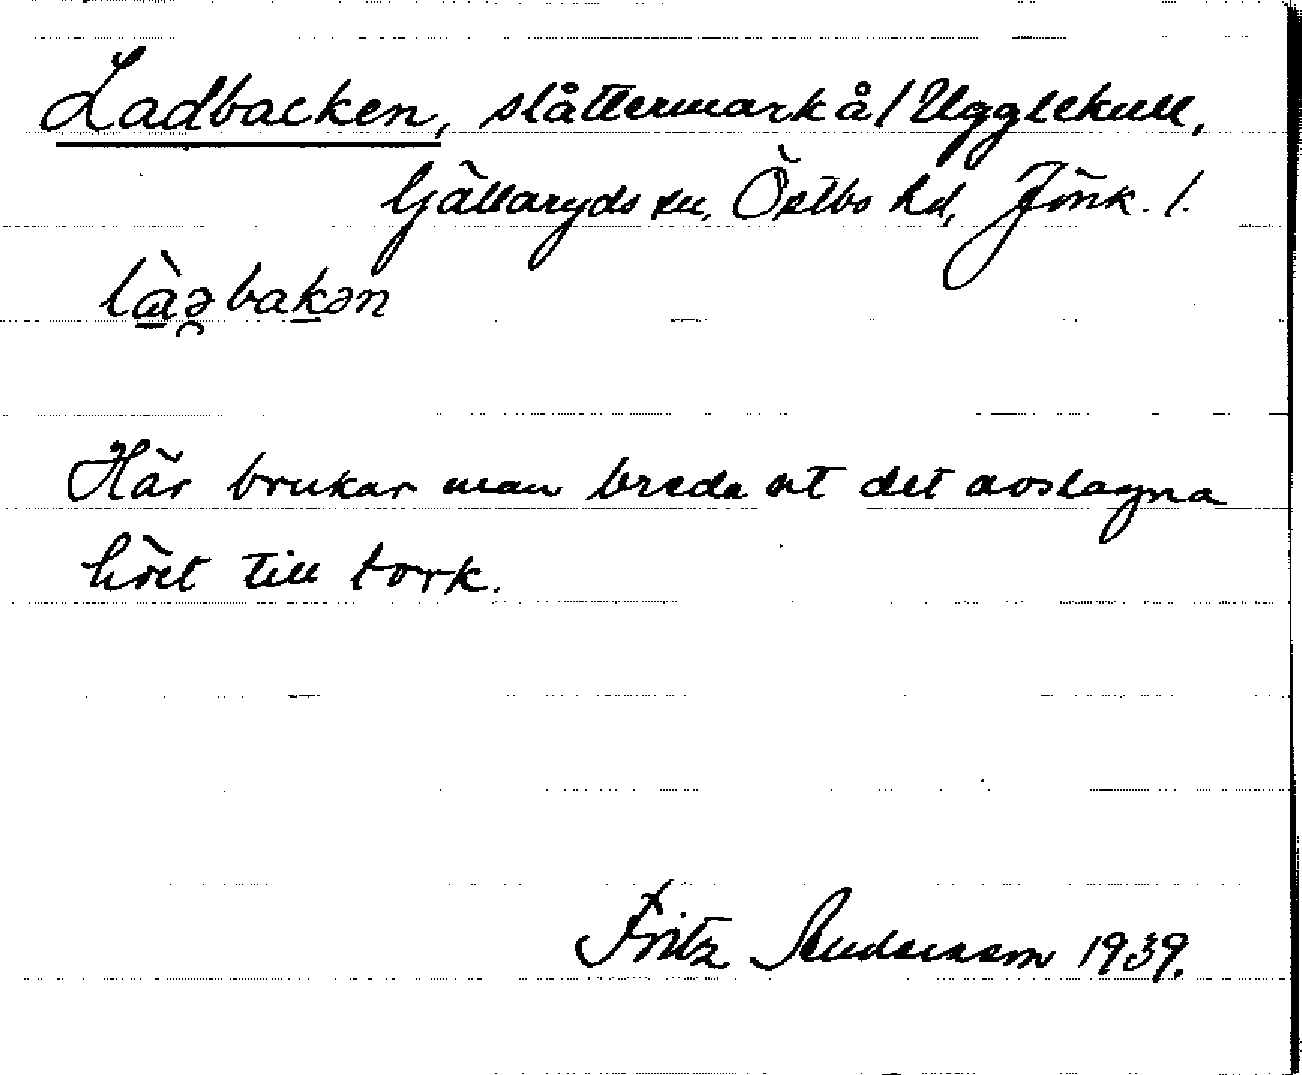 Ladbacken, slåttermark å/ Ugglekull,
Gällaryds sn, Östbo hd, Jönk. l.
là̱ə̯baḵən
Här brukar man breda ut det avslagna
höet till tork.
Fritz Andersson 1939.